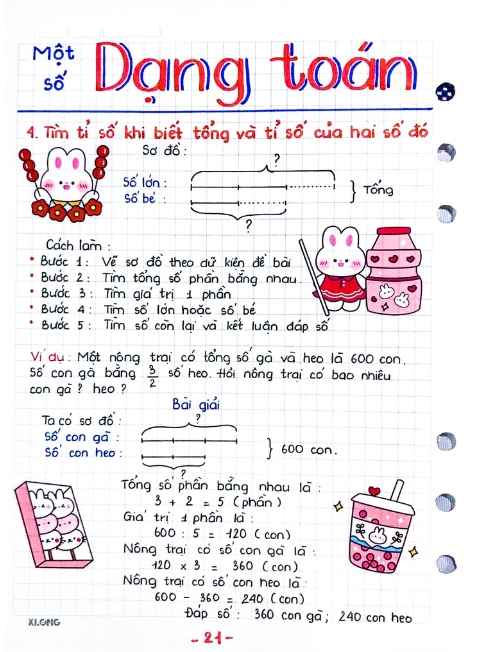 Một số
Dạng toán
4. Tìm tỉ số khi biết tổng và tỉ số của hai số đó
Sơ đồ :
?
Số lớn :
Số bé :
Tổng
?
Cách làm :
• Bước 1 : Vẽ sơ đồ theo dữ kiện đề bài
• Bước 2 : Tìm tổng số phần bằng nhau.
• Bước 3 : Tìm giá trị 1 phần
• Bước 4 : Tìm số lớn hoặc số bé
• Bước 5 : Tìm số còn lại và kết luận đáp số
Ví dụ : Một nông trại có tổng số gà và heo là 600 con.
Số con gà bằng 3/2 số heo. Hỏi nông trại có bao nhiêu
con gà ? heo ?
Bài giải
Ta có sơ đồ :
?
Số con gà :
Số con heo :
600 con.
?
Tổng số phần bằng nhau là :
3 + 2 = 5 (phần)
Giá trị 1 phần là :
600 : 5 = 120 (con)
Nông trại có số con gà là :
120 x 3 = 360 (con)
Nông trại có số con heo là :
600 - 360 = 240 (con)
Đáp số : 360 con gà ; 240 con heo
XI.ONG
- 21 -